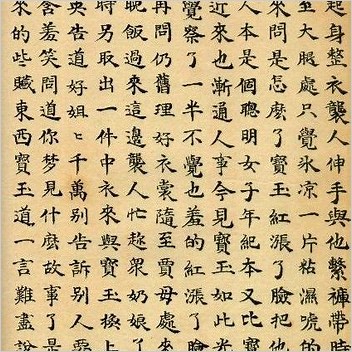 起身整衣襲人伸手與他繫褲帶時
至大腿處只覺氷凉一片粘濕唬的
來問是怎麼了寶玉紅漲了臉把他
人本是個聰明女子年紀本又比寶
近來也漸通人事今見寶玉如此光
覺察了一半不覺也羞的紅漲了臉
再問仍舊理好衣裳隨至賈母處來
晚飯過來這邊襲人忙趁衆奶娘
時另取出一件中衣來與寶玉換上
央告道好姐〻千萬別告訴別人要
含羞笑問道你夢見什麼故事了是
來的些贓東西寶玉道一言難盡說